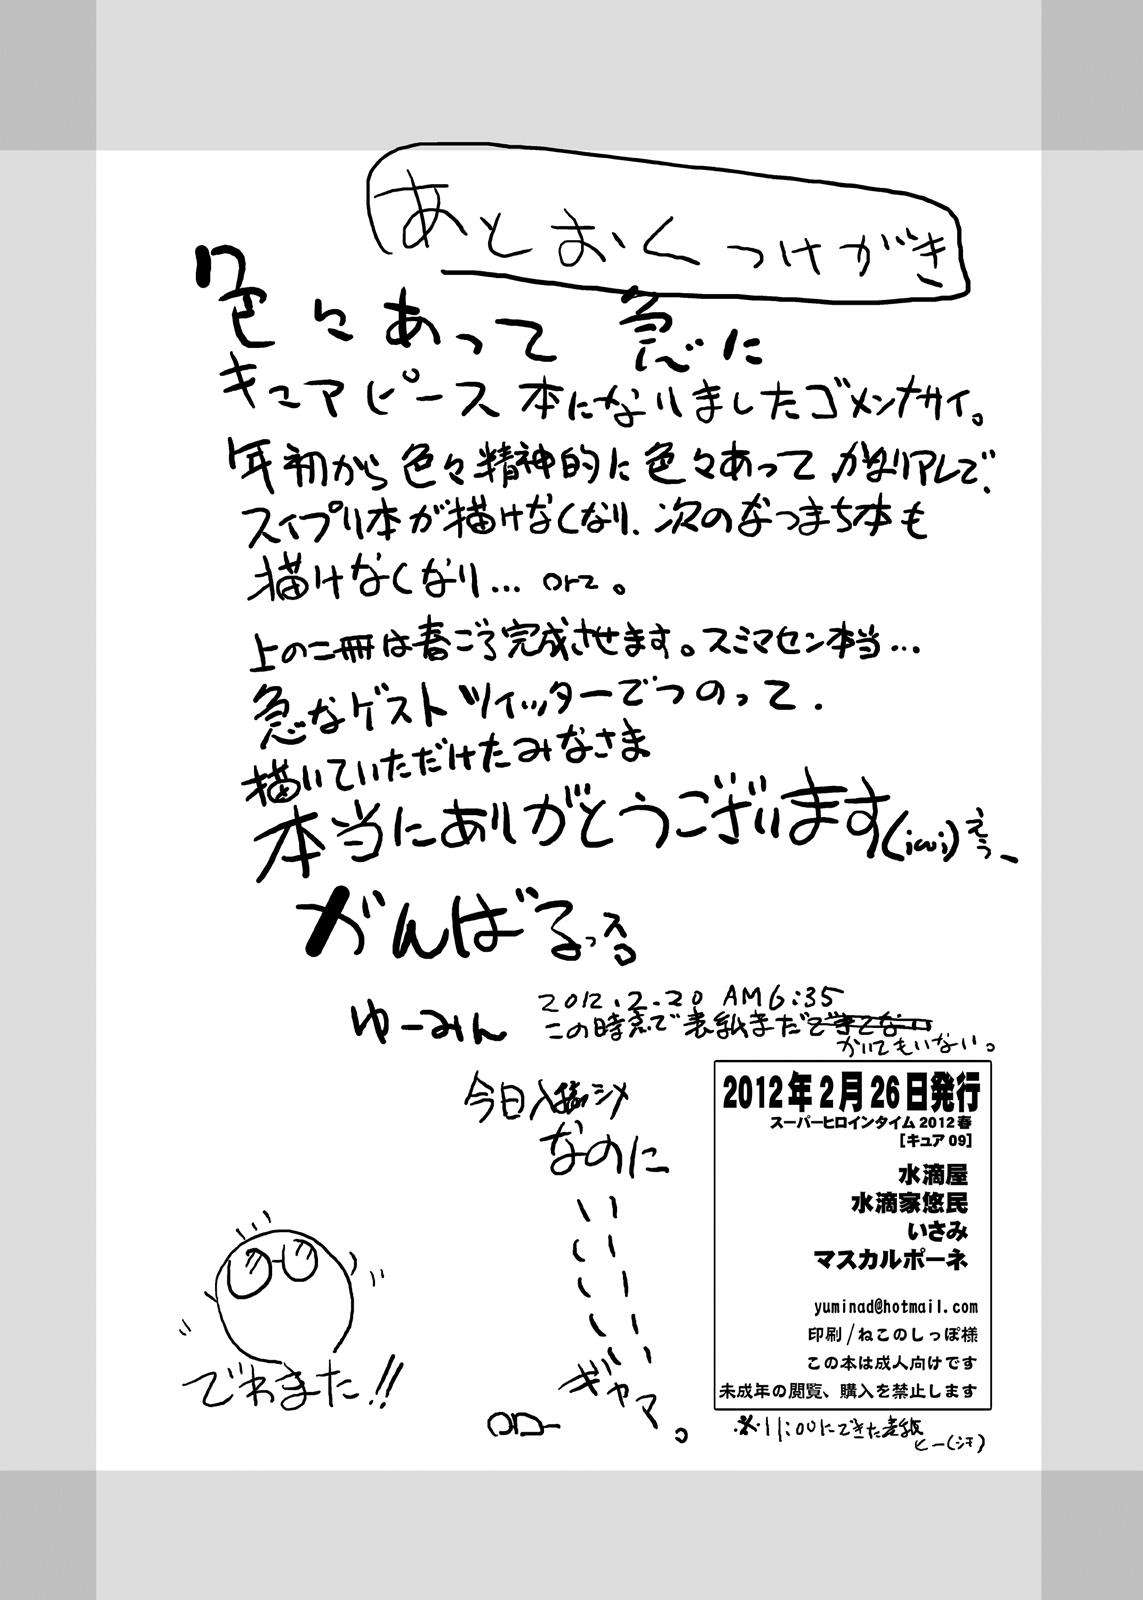 あとおくつけがき
色々あって 急に
キュアピース本になりましたゴメンナサイ。
年初から色々精神的に色々あってかなりアレで、
スイプリ本が描けなくなり、次のなつまち本も
描けなくなり… orz。
上の二冊は春ごろ完成させます。スミマセン本当…
急なゲスト ツイッターでつのって、
描いていただけたみなさま
本当にありがとうございます(;ω;)えぅ、
がんばるっス。
ゆーみん
2012.2.20 AM6:35
この時点で表紙まだできてない
かいてもいない。
今日入稿シメ
なのに
いいいいいい
ギャマ。
でわまた!!
2012年2月26日発行
スーパーヒロインタイム2012春
[キュア09]
水滴屋
水滴家悠民
いさみ
マスカルポーネ
yuminad@hotmail.com
印刷/ねこのしっぽ様
この本は成人向けです
未成年の閲覧、購入を禁止します
※11:00にできた表紙
ヒー